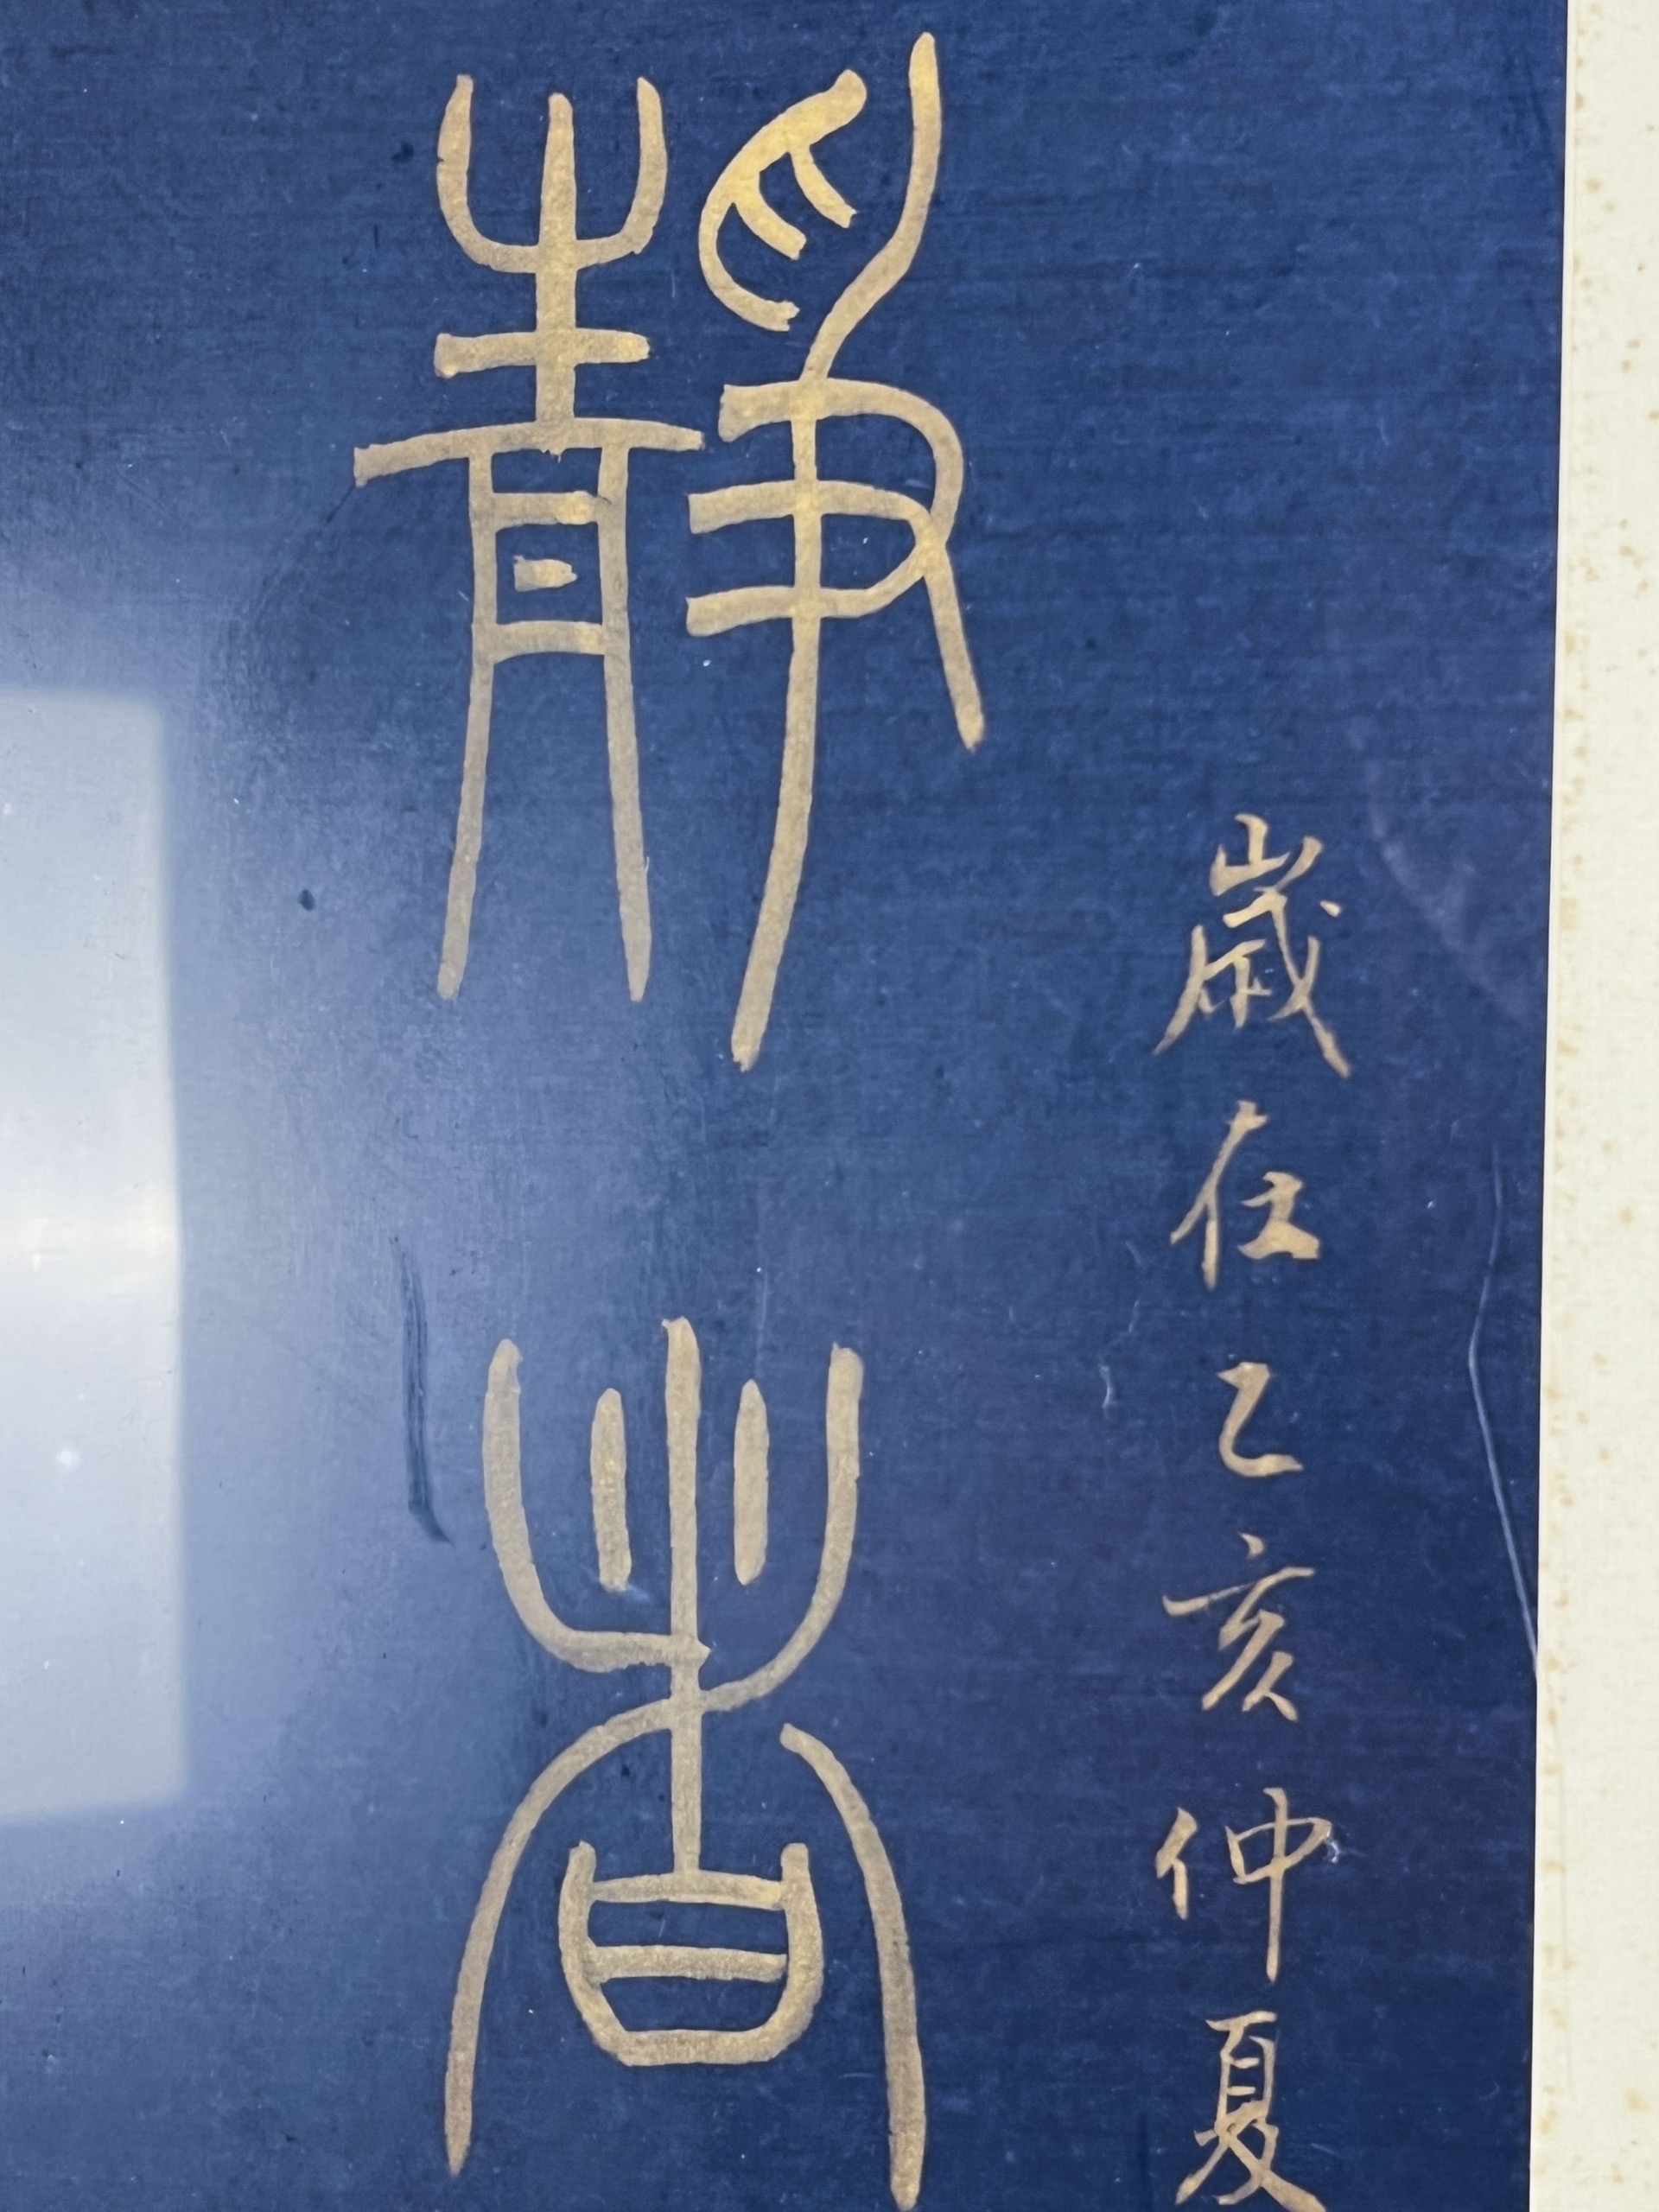 歲在乙亥仲夏
靜香